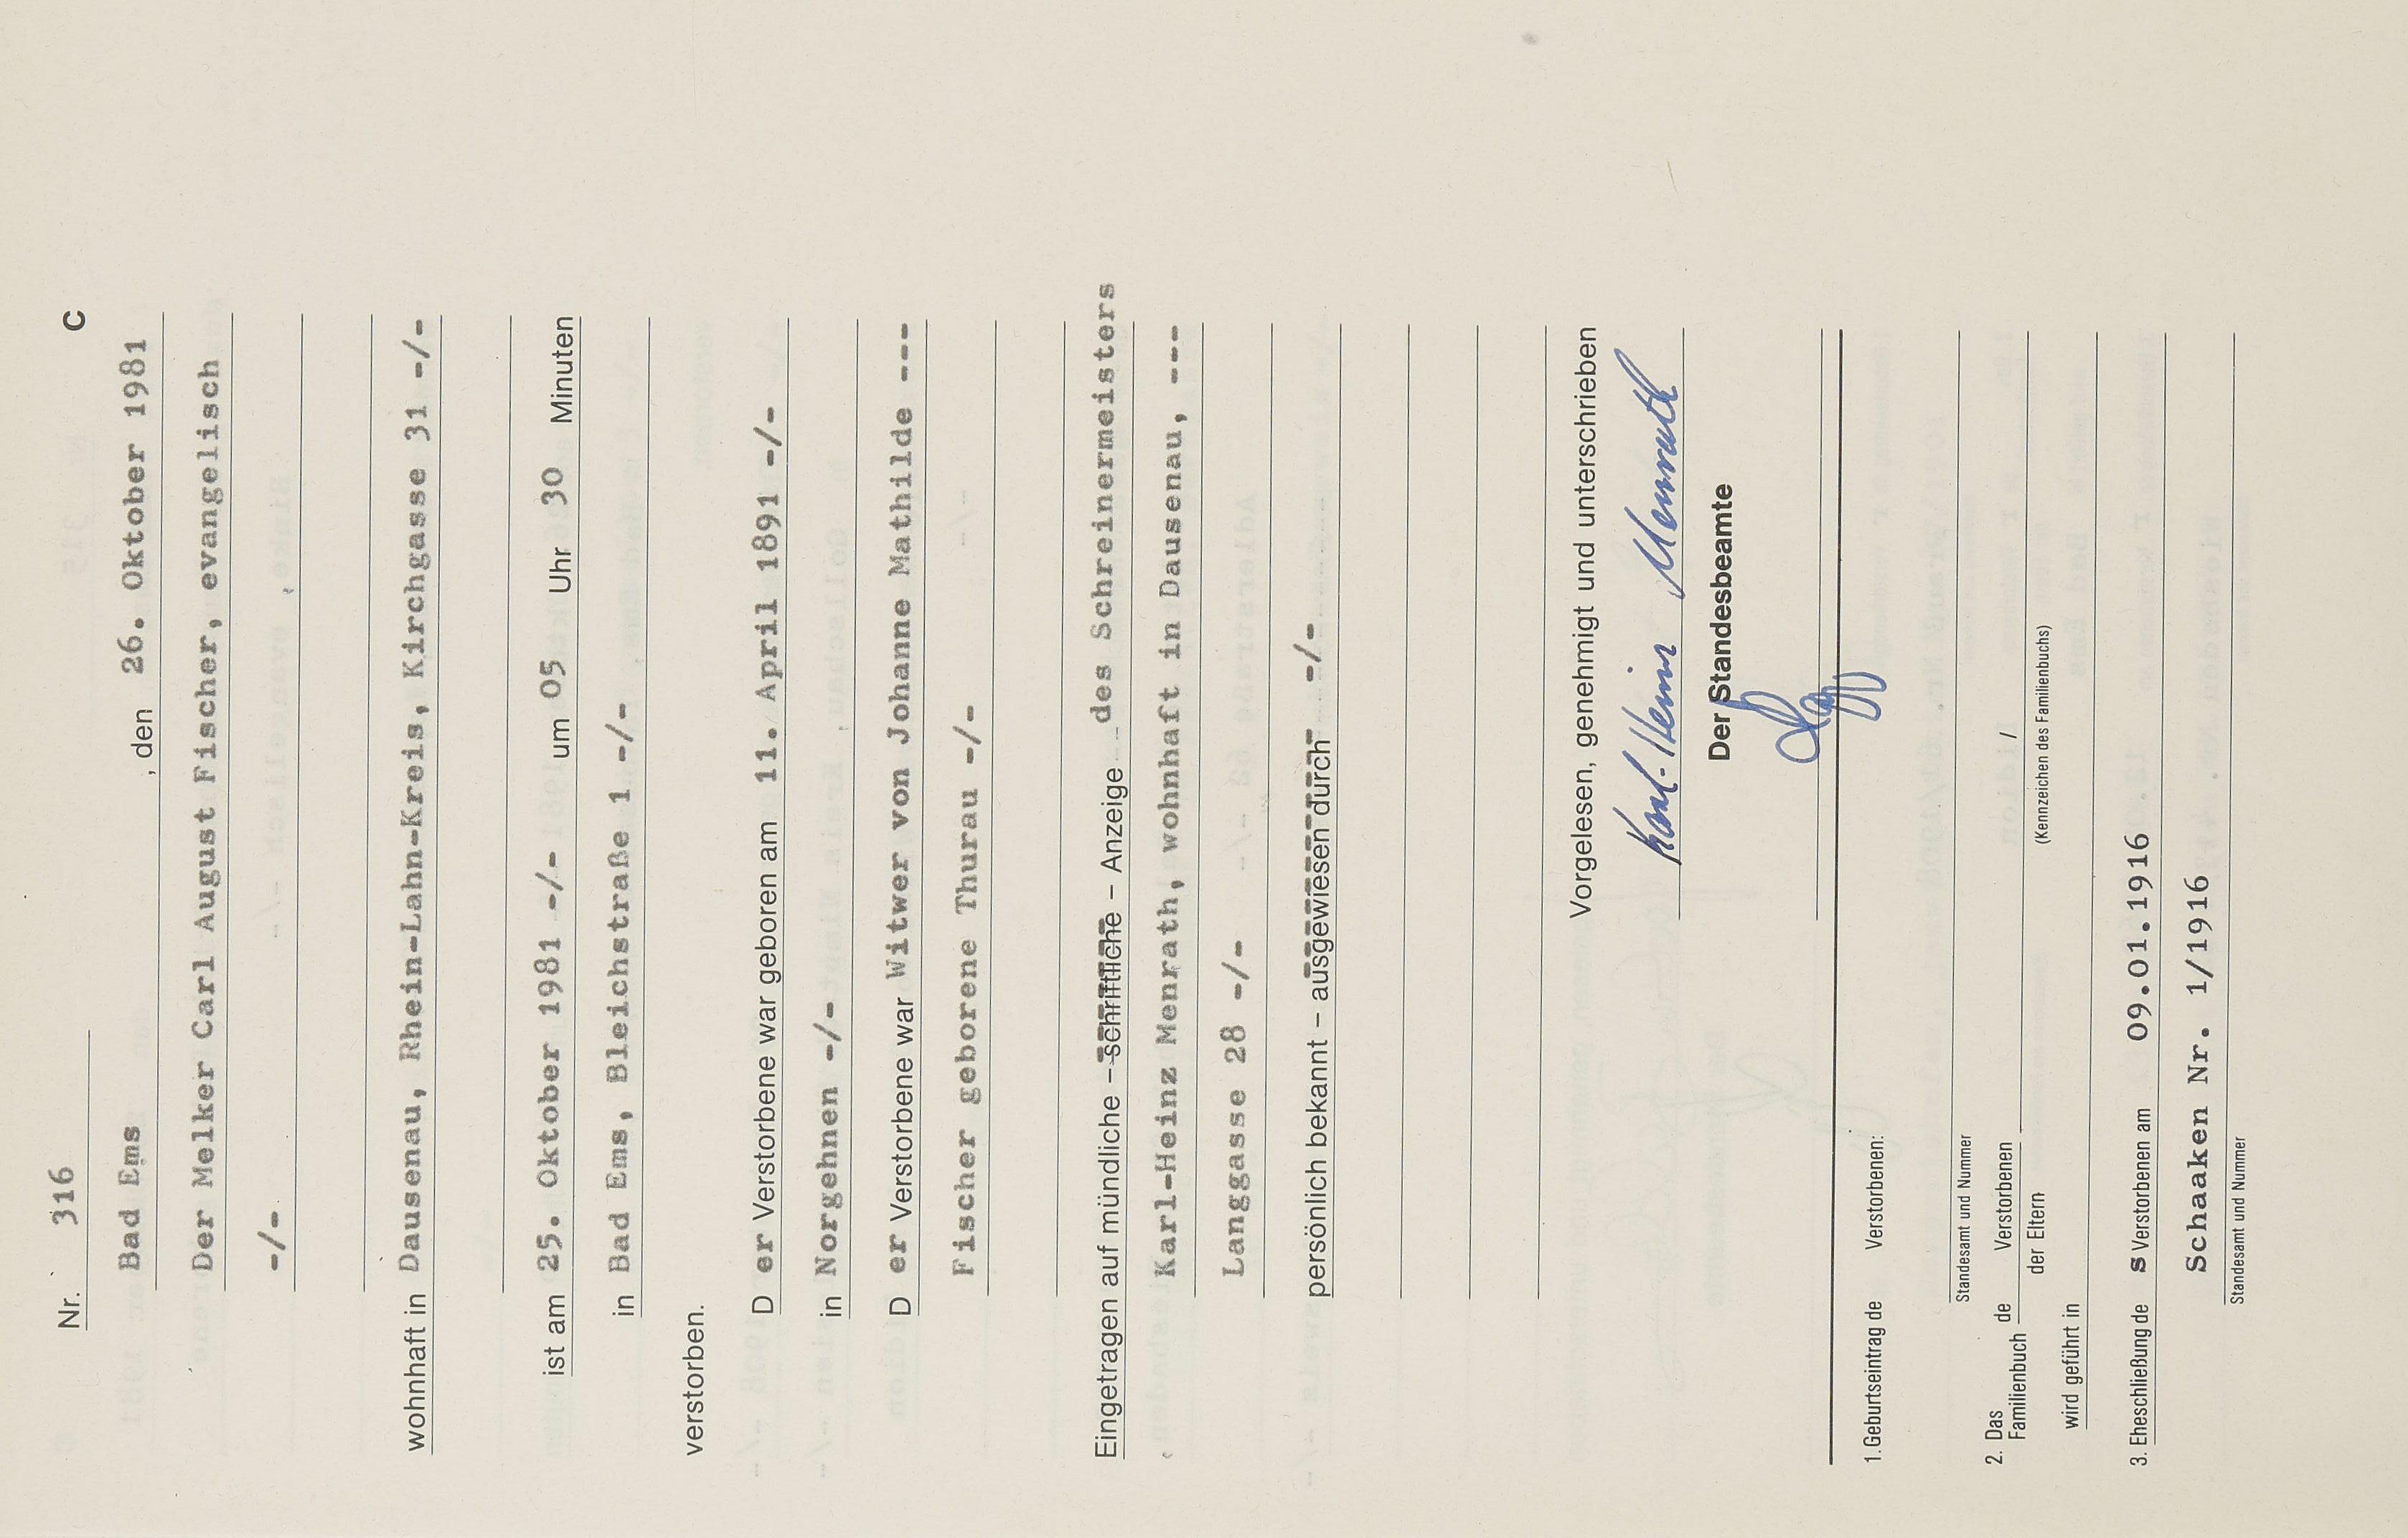 Nr. 316 C
Bad Ems , den 26. Oktober 1981
Der Melker Carl August Fischer, evangelisch
-/-
wohnhaft in Dausenau, Rhein-Lahn-Kreis, Kirchgasse 31 -/-
ist am 25. Oktober 1981 -/- um 05 Uhr 30 Minuten
in Bad Ems, Bleichstraße 1 -/-
verstorben.
D er Verstorbene war geboren am 11. April 1891 -/-
in Norgehnen -/-
D er Verstorbene war Witwer von Johanne Mathilde ---
Fischer geborene Thurau -/-
Eingetragen auf mündliche – schriftliche – Anzeige des Schreinermeisters
Karl-Heinz Menrath, wohnhaft in Dausenau, ---
Langgasse 28 -/-
persönlich bekannt – ausgewiesen durch -/-
Vorgelesen, genehmigt und unterschrieben
Karl-Heinz Menrath
Der Standesbeamte
1. Geburtseintrag de Verstorbenen:
Standesamt und Nummer
2. Das Familienbuch de Verstorbenen /
der Eltern (Kennzeichen des Familienbuchs)
wird geführt in
3. Eheschließung de s Verstorbenen am 09.01.1916
Schaaken Nr. 1/1916
Standesamt und Nummer